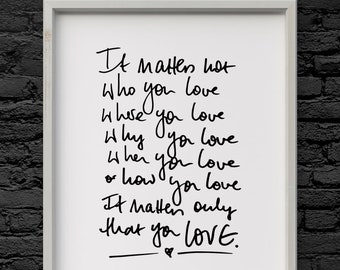 It matters not
who you love
where you love
why you love
when you love
or how you love
It matters only
that you LOVE.